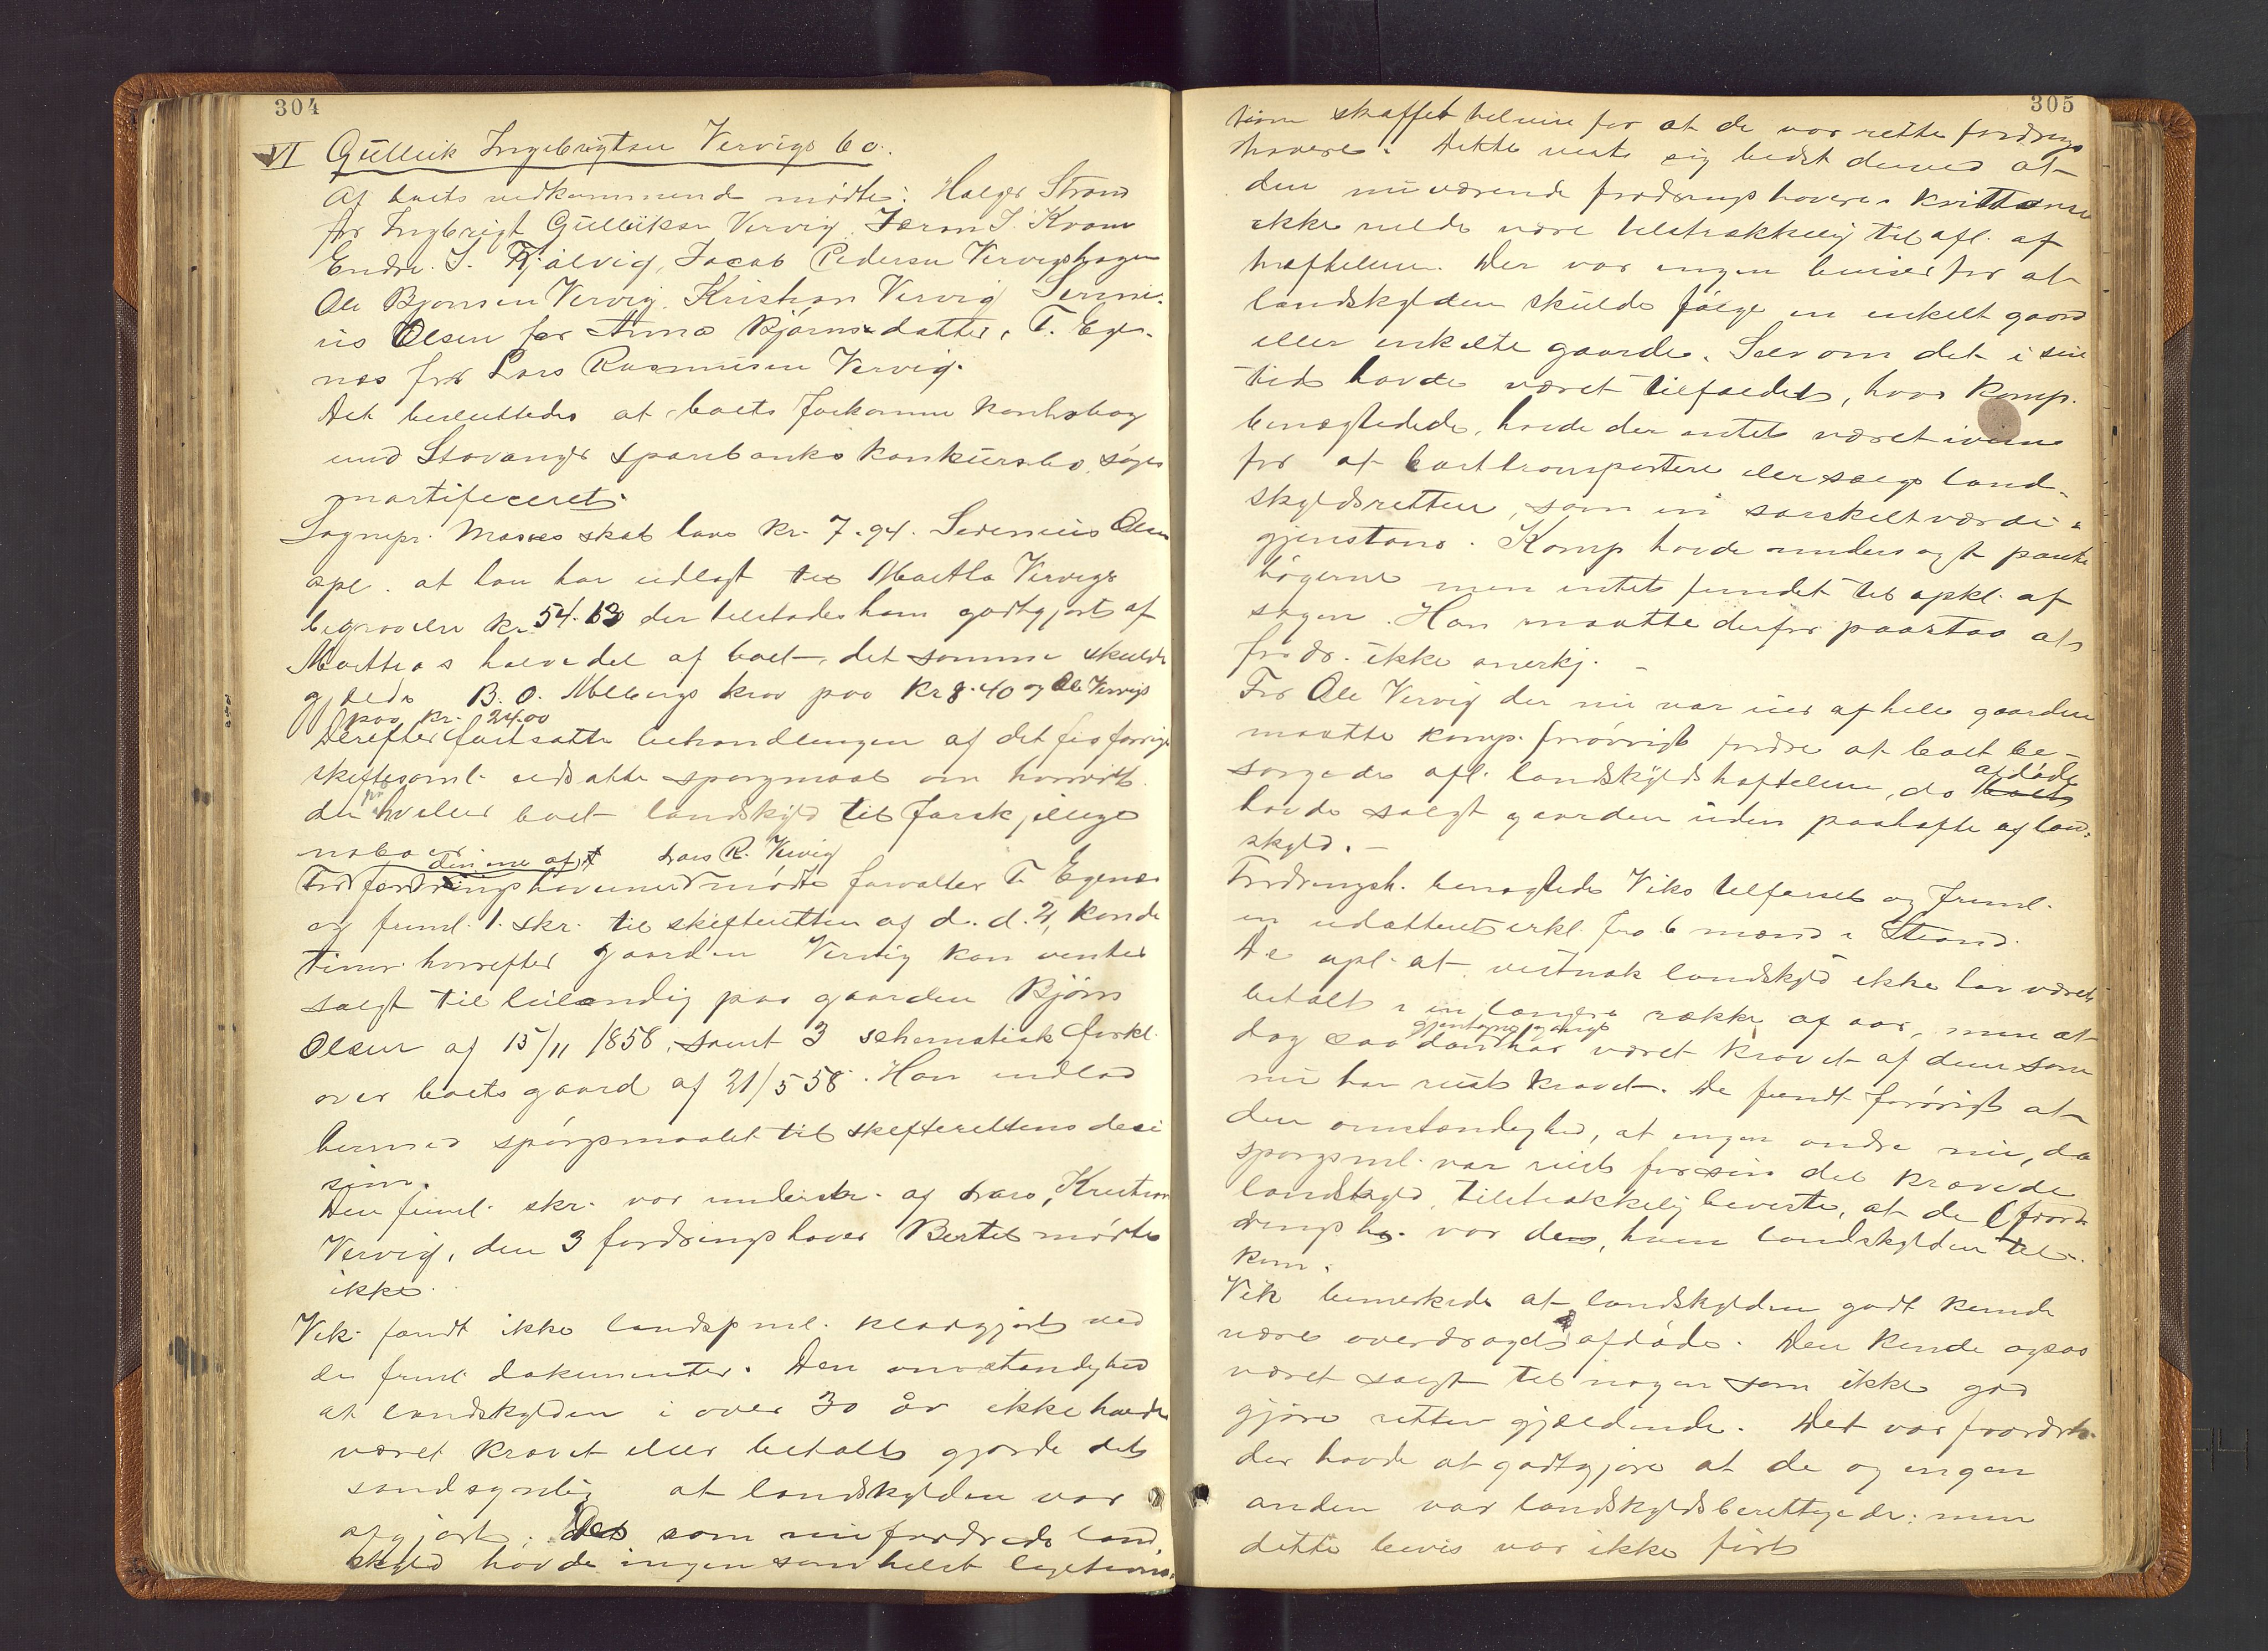 304
VI Gullik Ingebrigtsen Vervigs bo.
Af boets vedkommende mødte: Holger Strand
for Ingbrigt Gulliksen Vervig, J. Kvam
Endre J. Fjølvig, Jacob Pedersen Vervigshagen
Ole Bjønsen Vervig, Kristian Vervig Sereni-
us Olsen for Anna Bjørnsdatter, T. Ege-
næs for Lars Rasmussen Vervig.
Det besluttedes at boets forkomne kontrabog
med Stavanger Sparebanks konkursbo, søges
mortificeret.
Sognepr. skat lavs kr. 7.94. Serenius Olsen
opl. at han har udlagt til Martha Vervigs
begravelse kr. 54.13 der tilstodes ham godtgjort af
Marthas halvedel af boet, det samme skulde
gjælde B. O. Melbergs krav paa kr 8.40 og Ole Vervigs
paa kr. 24.00
Derefter fortsatte behandlingen af det fra forrige
skiftesaml. udsatte spørgsmaal om hvorvidt
der paahviler boet landskyld til forskjellige
naboer
For fordringshaverne den ene af Lars R. Vervig mødte forvalter T. Egenæs
og freml. 1. skr. til skifteretten af d. d. 2,
hvorefter gaarden Vervig
solgt til leilænding paa gaarden Bjørn
Olsen af 15/11 1858, samt 3 schematisk forkl.
over boets gaard af 21/5 58. Han indlod
hermed spørgsmaalet til skifterettens deci
sion.
Den freml. skr. var underskr. af Lars, Kristian
Vervig, den 3 fordringshaver Bertel mødte
ikke.
Vik fandt ikke landspml. klargjort ved
de freml. dokumenter. Den omstændighed
at landskylden i over 30 år ikke havde
været krævet eller betalt gjorde det
sandsynlig at landskylden var
afgjort. De som nu fordrede land,
skyld havde ingen somhelst legitima-
305
tion skaffet tilveie for at de var rette fordrings
havere. Dette viste sig bedst derved at
den nuværende fordringshaveres kvittance
ikke vilde være tilstrækkelig til afl. af
hæftelsen. Der var ingen beviser for at
landskylden skulde følge en enkelt gaard
eller enkelte gaarde. Selv om det i sin
tid havde været tilfældet, hvad komp.
benægtede, havde der intet været iveien
for at borttransportere eller sælge land-
skyldsretten, som en særskilt værdi-
gjenstand. Komp havde undersøgt pante
bøgerne men intet fundet til opkl. af
sagen. Han maatte derfor paastaa at
fordr. ikke anerkj. –
For Ole Vervig der nu var eier af hele gaarden
maatte komp. forøvrigt fordre at boet be-
sørgede afl. landskyldshæftelsen, da afdøde
havde solgt gaarden uden paahæfte af lan-
skyld. –
Fordringsh. benægtede Viks tilførsel og freml.
en udatteret erkl. fra 6 mænd i Strand.
De opl. at vistnok landskyld ikke har været
betalt i en længre række af aar, men at
dog saadan gjentagne gange har været krævet af dem som
nu har reist kravet. De fandt forøvrigt at
den omstændighed, at ingen andre nu, da
spørgsml. var reist for sin del krævede
landskyld, tilstrækkelig beviste, at de (ford-
ringsh. var dem, hvem landskylden til-
kom.
Vik bemerkede at landskylden godt kunde
være overdraget afdøde. Den kunde ogsaa
været solgt til nogen som ikke gad
gjøre retten gjældende. Det var fordrh.
der havde at godtgjøre at de og ingen
anden var landskyldsberettigede: men
dette bevis var ikke ført